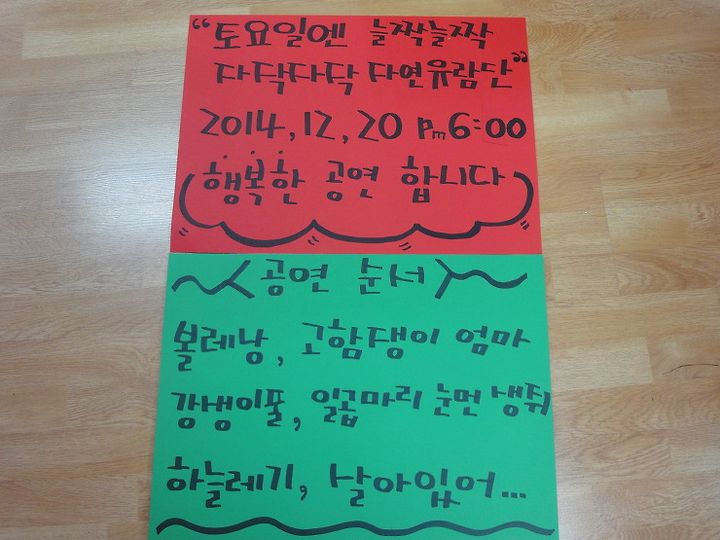 “토요일엔 늘짝늘짝
다닥다닥 다연유람단”
2014, 12, 20 pm 6:00
행복한 공연 합니다
공연 순서
볼레낭, 고함댕이 엄마
강생이풀, 일곱마리 눈먼 생쥐
하늘레기, 날아있어...